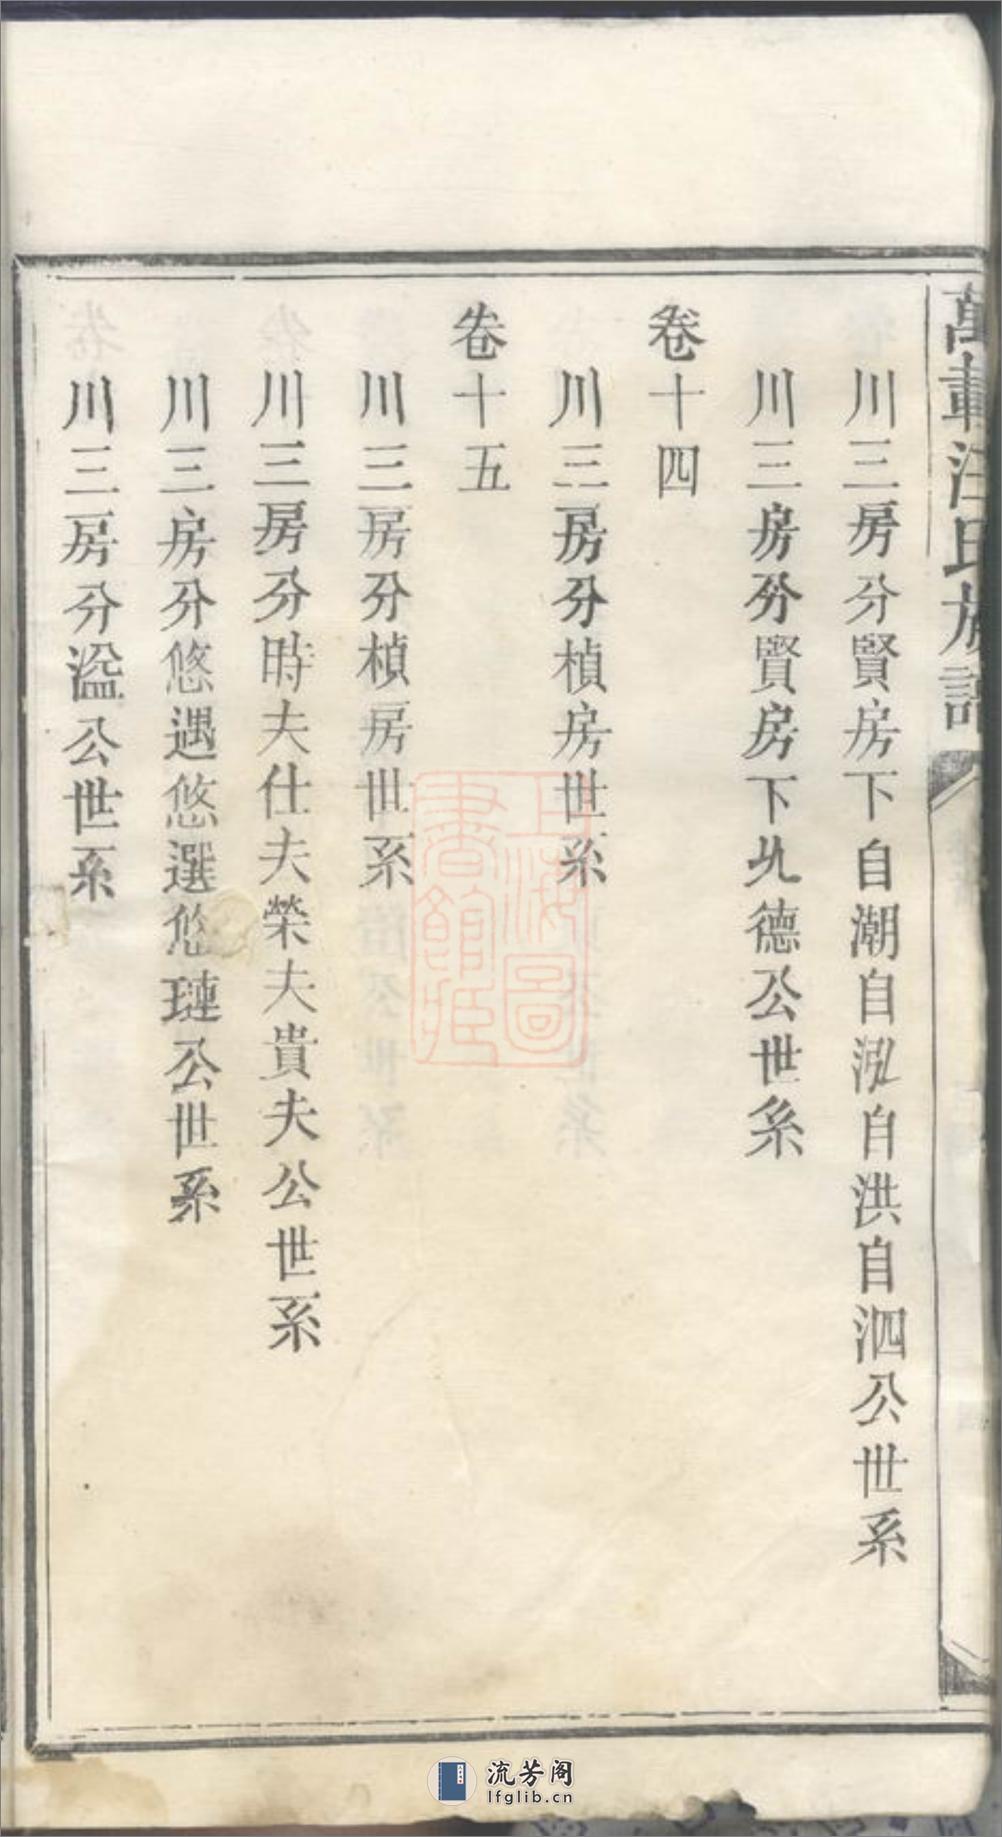 萬載汪氏族譜
川三房分賢房下自潮自泓自洪自泗公世系
川三房分賢房下允德公世系
卷十四
川三房分楨房世系
卷十五
川三房分楨房世系
川三房分時夫仕夫榮夫貴夫公世系
川三房分悠遇悠選悠璉公世系
川三房分溢公世系
上海圖書館藏
流芳阁
lfglib.cn